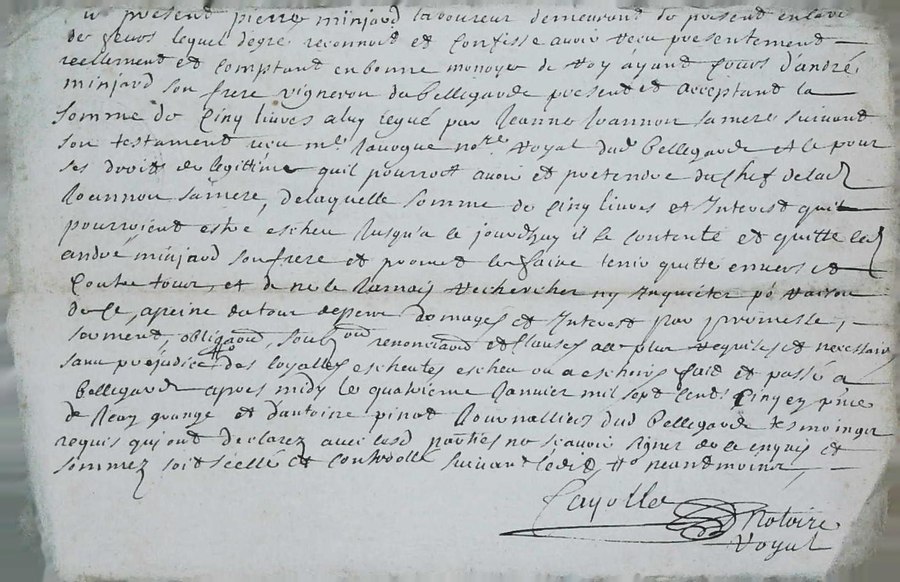 présent pierre minjard laboureur demeurant de présent en lave
de feurs lequel de gré reconnoit et confesse avoir receu presentement
reellement et comptant en bonne monoye de Roy ayant Cours d'andré
minjard son frere vigneron du bellegarde present et acceptant la
somme de Cinq livres a luy legué par Jeanne Joannon sa mere suivant
son testament receu me Lavogue nore Royal dud bellegarde et ce pour
ses droits de legittime quil pourroit avoir et pretendre du chef de lad
Joannon sa mere, delaquelle somme de Cinq livres et Interest quil
pourroient estre escheu Jusqu'a ce jourdhuy il se contente et quitte led
andré minjard son frere et promet le faire tenir quitte envers et
Contre tous, et de ne le Jamais rechercher ny Inquieter po raison
de ce, a peine de tous despens domages et Interest par promesse,
serment, obligaons, soub. on renonciaons et Clauses a ce plus requises et necessaires
sans prejudice des loyalles escheutes escheu ou a eschoir fait et passé a
bellegarde apres midy le quatrieme Janvier mil sept Cents Cinq ez pnce
de Remy grange et d'antoine pinot Journalliers dud bellegarde tesmoings
requis qui ont declarez avec lesd parties ne scavoir signer de ce enquis et
sommez soit scellé et controllé suivant l'edit neantmoins,
Cayolle Notaire
Royal